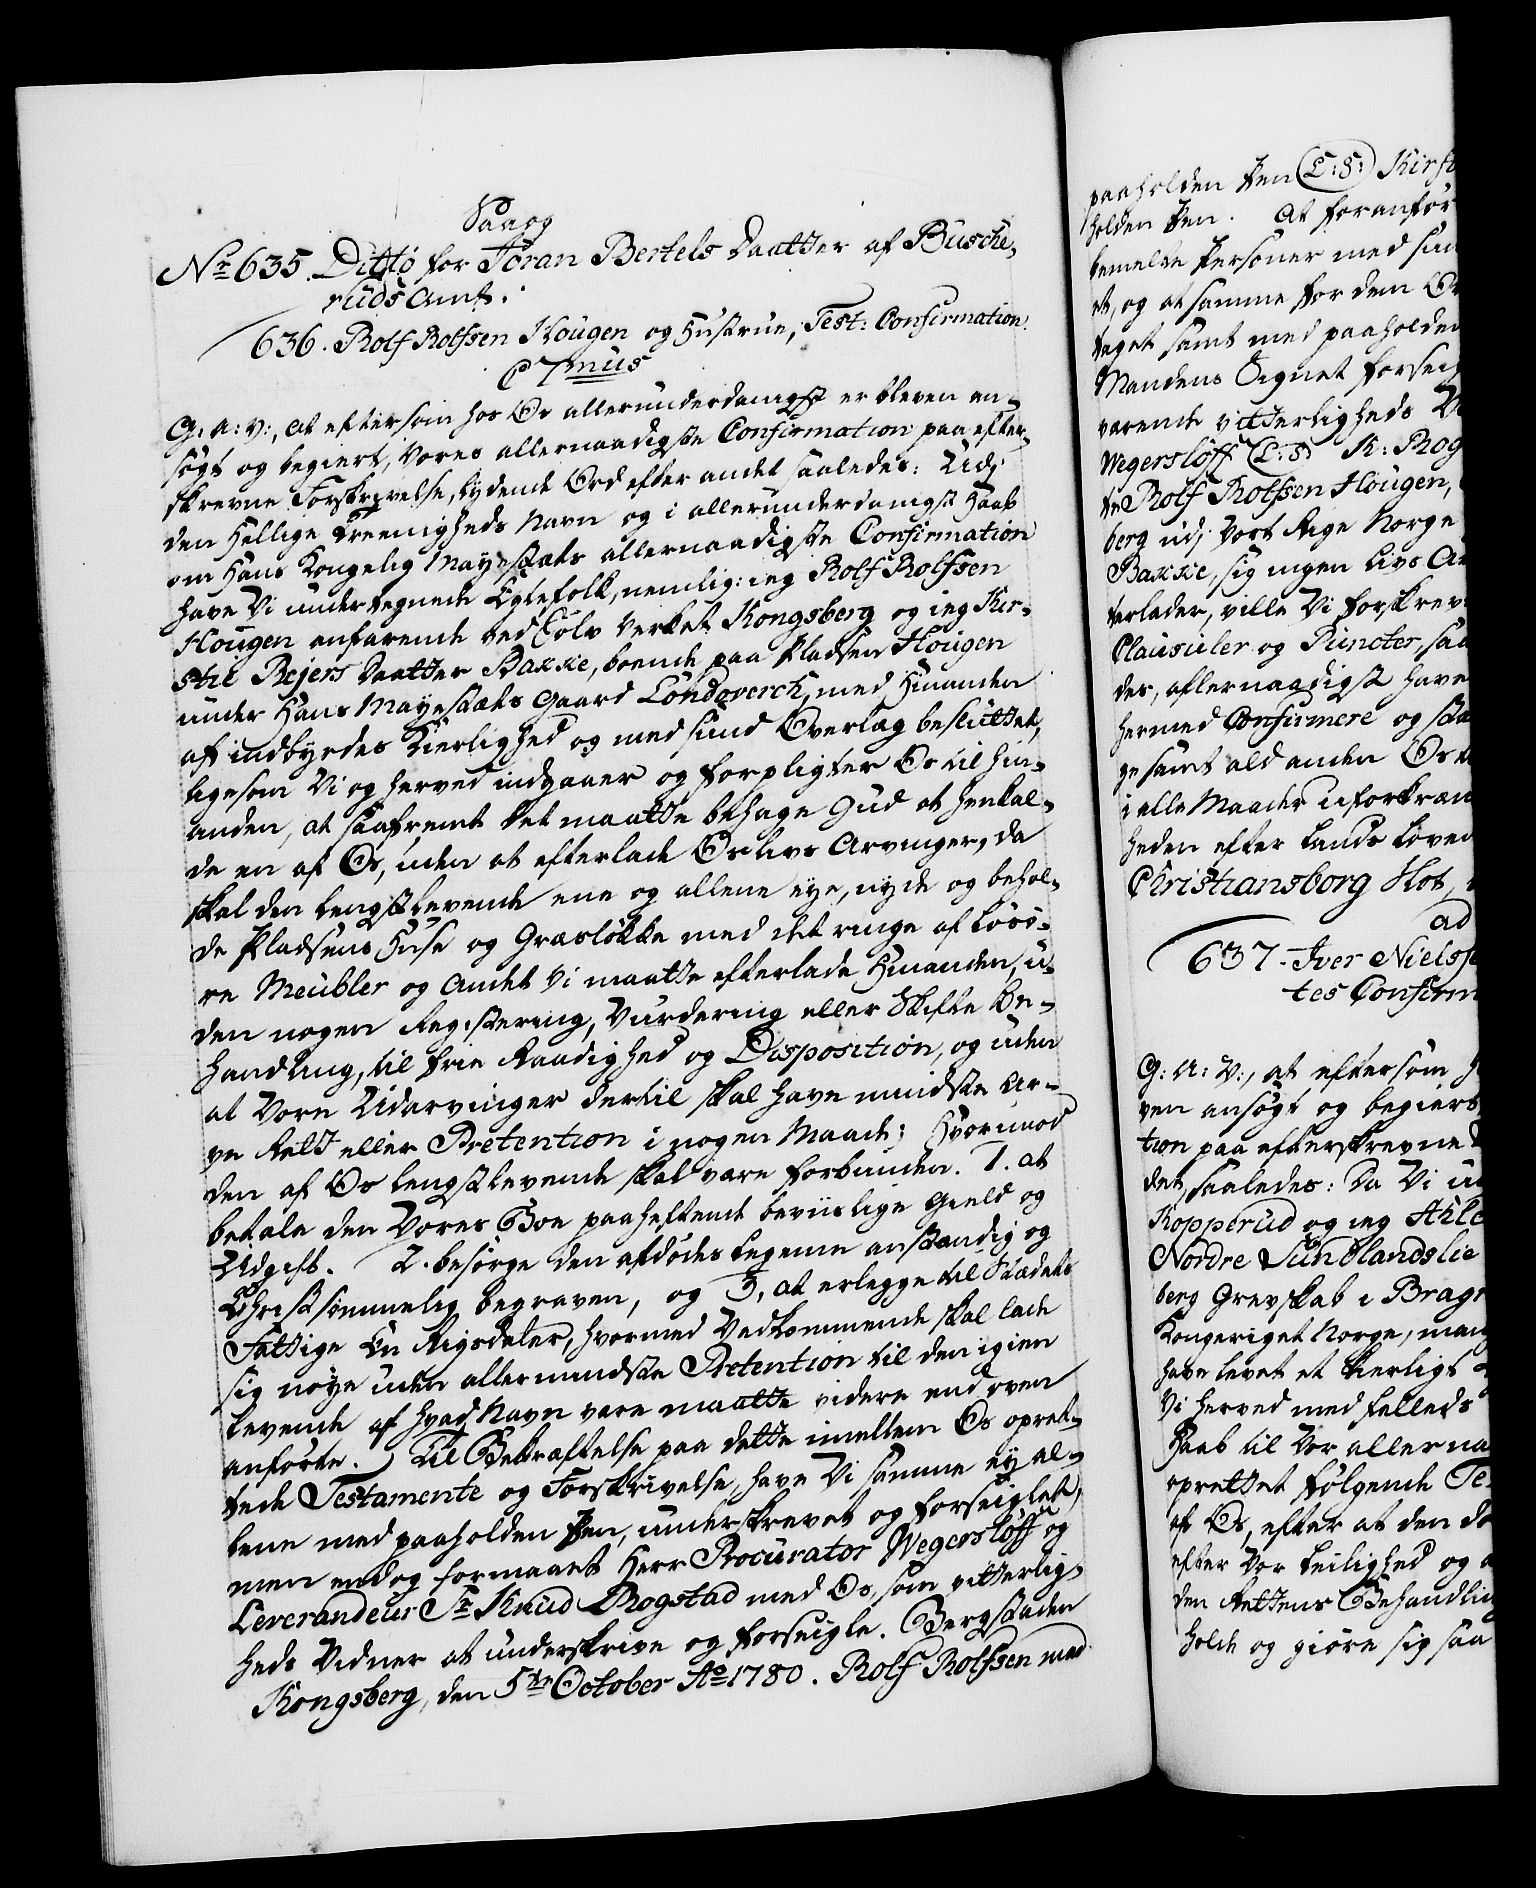 Saa og
No 635. Ditto for Jöran Bertels Daatter af Busche-
ruds Amt.
636. Rolf Rolfsen Hougen og Hustrue, Test: Confirmation.
C 7mus
G: A: V:, at eftersom hos Os allerunderdanigst er bleven an-
søgt og begiert, Vores allernaadigste Confirmation paa efter-
skrevne Forskrivelse, lydende Ord efter andet saaledes: Udj
den Hellige Treenigheds Navn og i allerunderdanigst Haab
om Hans Kongelig Mayestæts allernaadigste Confirmation
have Vi undertegnede Egtefolk, nemlig: ieg Rolf Rolfsen
Hougen anfarende ved Sölv Verket Kongsberg og ieg Kir-
stie Rejers Daatter Bakke, boende paa Pladsen Hougen
under Hans Mayestæts Gaard Londoverch, med Hinanden
af indbyrdes Kierlighed og med sund Overlæg besluttet,
ligesom Vi og herved indgaaer og forpligter Os til hin-
anden, at saafremt det maatte behage Gud at henkal-
de en af Os, uden at efterlade Os Livs Arvinger, da
skal den lengstlevende ene og allene eye, nyde og behol-
de Pladsens Huse og Græsløkke med det ringe af Løsö-
re Meubler og Andet Vi maatte efterlade Hinanden, u-
den nogen Registering, Vurdering eller Skifte Be-
handling, til frie Raadighed og Disposition, og uden
at Vore Udarvinger dertil skal have mindste Ar-
ve Rett eller Pretention i nogen Maade; Hvorimod
den af Os lengstlevende skal være forbunden. 1. at
betale den Vores Boe paaheftende beviislige Gield og
Udgift. 2. besørge den afdødes Legeme anstændig og
Christsømmelig begraven, og 3, at erlegge til Stædets
Fattige En Rigsdaler, hvormed Vedkommende skal lade
sig nøye uden allermindste Pretention til den igien
levende af hvad Navn være maatte videre end oven
anførte. Til Bekræftelse paa dette imellem Os opret-
tede Testamente og Forskrivelse, have Vi samme ey al-
lene med paaholden Pen, underskrevet og forseiglet,
men endog formaaet Herr Procurator Wegersløff og
Leverandeur Sr Knud Rogstad med Os, som vitterlig-
heds Vidner at underskrive og forseigle. Bergstaden
Kongsberg, den 5te October Ao 1780. Rolf Rolfsen med
paaholden Pen (L:S:) Kirst
holden Pen. At foranför
bemelte Personer med sin
et, og at samme for dem
taget samt med paaholden
Mandens Signet forseig
værende vitterligheds
Wegersloff (L:S) K: Rog
te Rolf Rolfsen Hougen,
berg udj Vort Rige Norge
Bakke, sig ingen Livs Ar
terlader, ville Vi forskrev
Clausuler og Puncter, saa
der, allernaadigst have
hermed Confirmere og sta
ge samt ald anden Os
i alle Maader uforkræn
heden efter Lands Loven
Christiansborg Slot,
ad
637. Iver Nielss
tes Confirm
G: A: V:, at eftersom h
ven ansøgt og begiert
tion paa efterskrevne
det, saaledes: Da Vi u
Kopperud og ieg Ahle
Nordre Sundlandslie
berg Grevskab i Bragn
Kongeriget Norge, mang
have levet et kierligt
Vi herved med felleds
Haab til Vor allerna
oprettet følgende Te
af Os, efter at den dø
efter Vor Leilighed og
den Rettens Behandling
holde og giøre sig saa